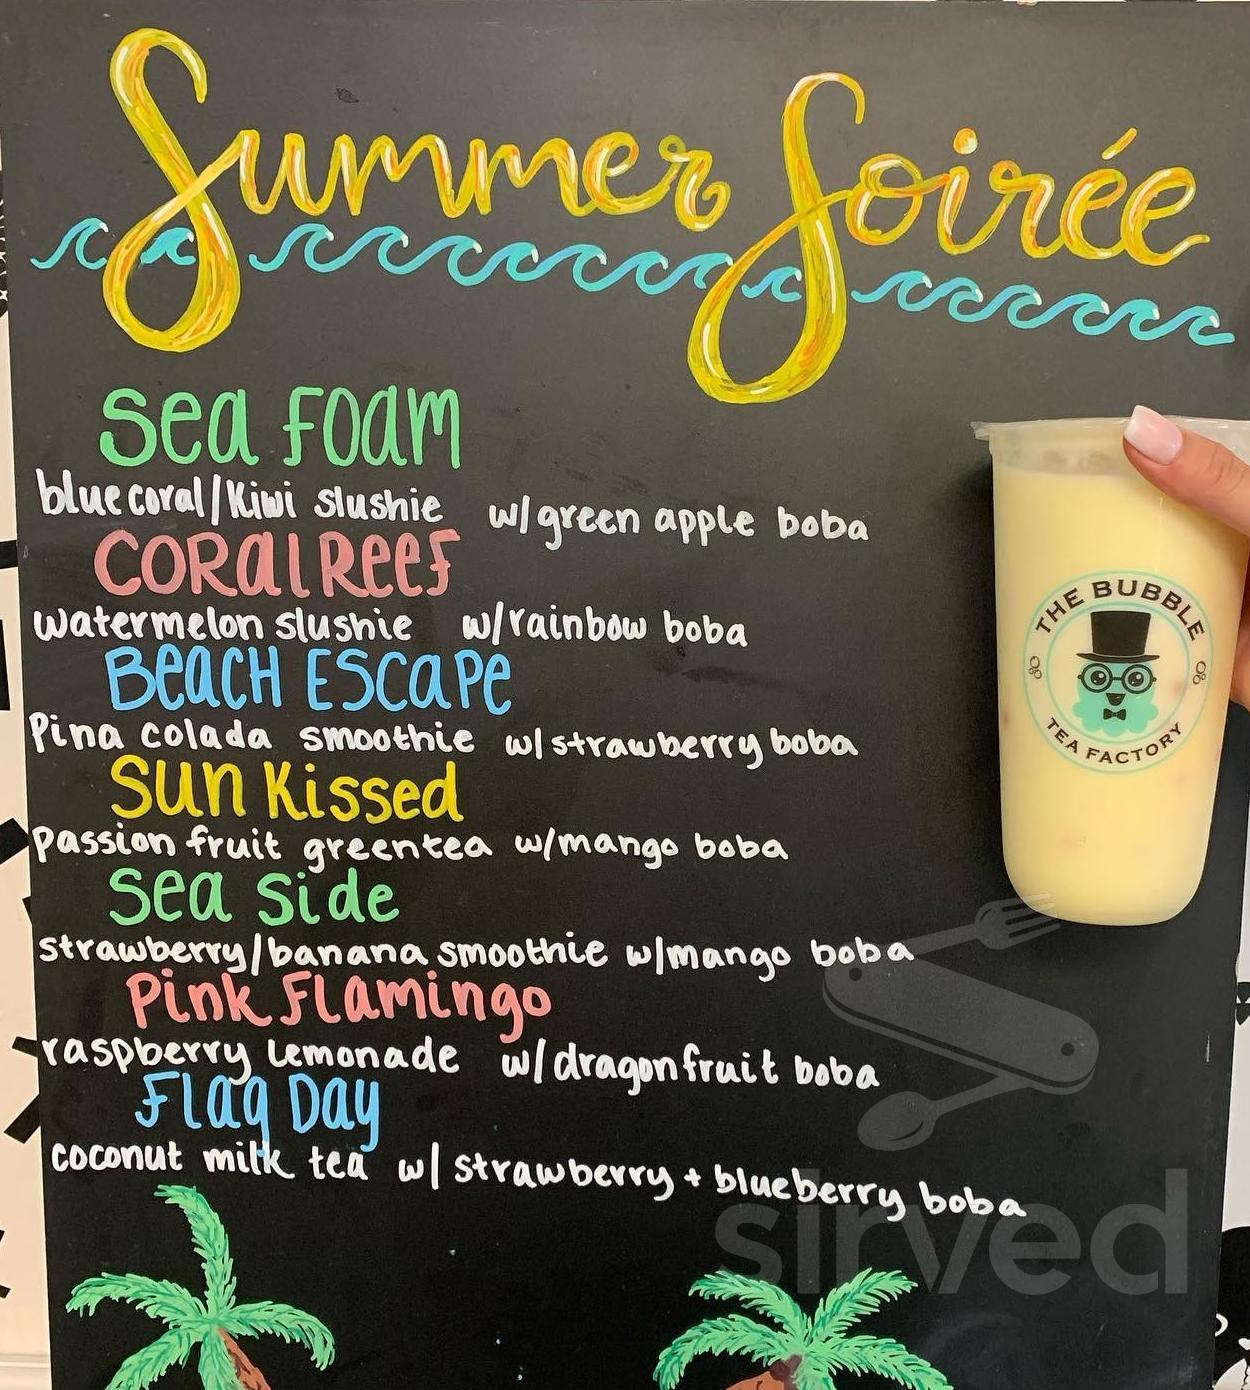 Summer Soirée
Sea Foam
blue coral/Kiwi slushie w/green apple boba
Coral Reef
watermelon slushie w/rainbow boba
Beach Escape
Pina colada smoothie w/strawberry boba
Sun Kissed
Passion fruit green tea w/mango boba
Sea Side
strawberry/banana smoothie w/mango boba
Pink Flamingo
raspberry Lemonade w/dragonfruit boba
Flag Day
coconut milk tea w/ strawberry + blueberry boba
THE BUBBLE
TEA FACTORY
sirved